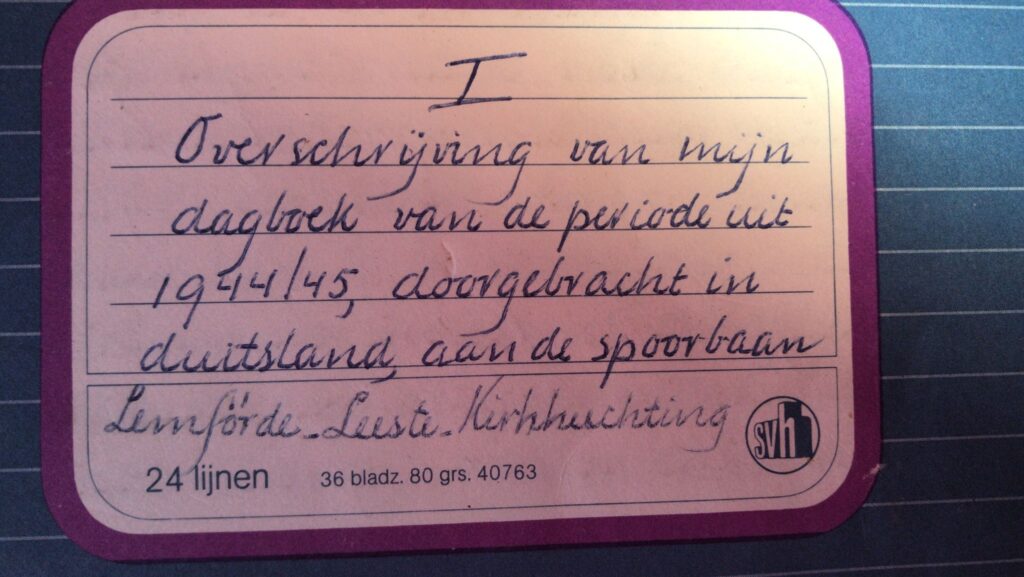 I
Overschrijving van mijn
dagboek van de periode uit
1944/45, doorgebracht in
duitsland, aan de spoorbaan
Lemförde - Leeste - Kirkhuchting
24 lijnen
36 bladz. 80 grs. 40763
svh